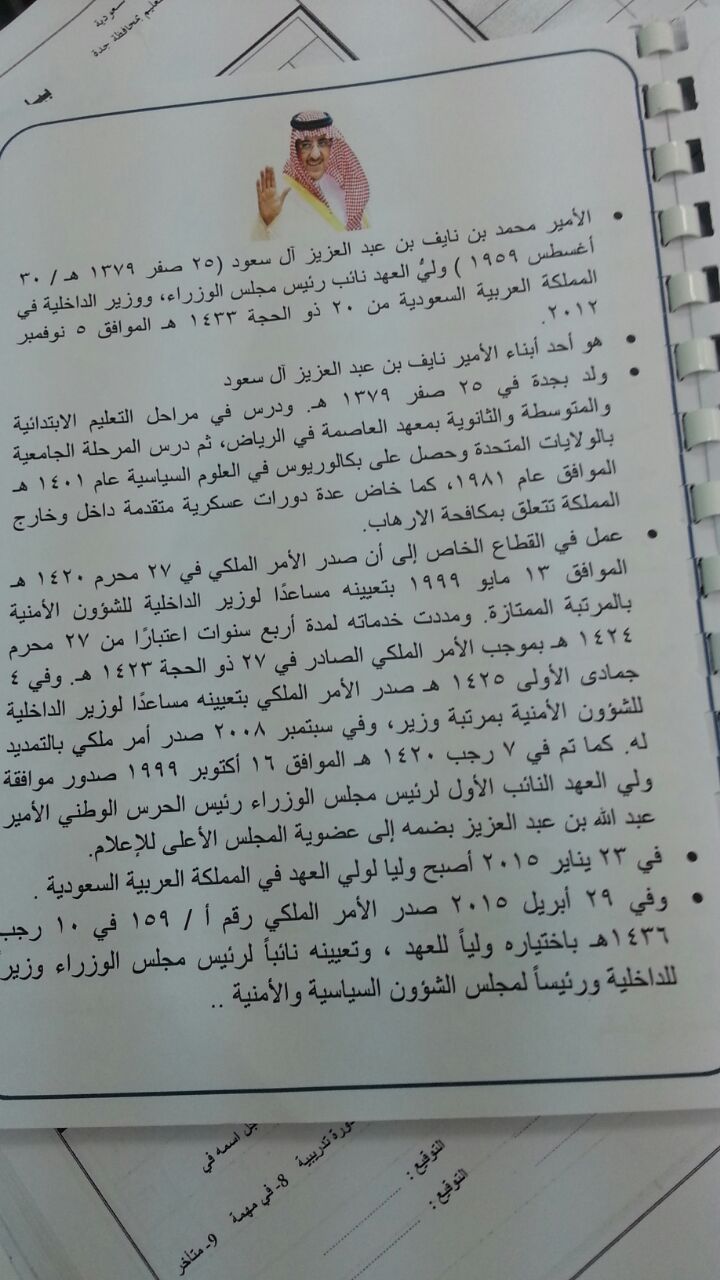 سعودية
تعليم بمحافظة جدة
الأمير محمد بن نايف بن عبد العزيز آل سعود (٢٥ صفر ١٣٧٩ هـ / ٣٠
أغسطس ١٩٥٩ ) وليُّ العهد نائب رئيس مجلس الوزراء، ووزير الداخلية في
المملكة العربية السعودية من ٢٠ ذو الحجة ١٤٣٣ هـ الموافق ٥ نوفمبر
٢٠١٢.
هو أحد أبناء الأمير نايف بن عبد العزيز آل سعود
ولد بجدة في ٢٥ صفر ١٣٧٩ هـ. ودرس في مراحل التعليم الابتدائية
والمتوسطة والثانوية بمعهد العاصمة في الرياض، ثم درس المرحلة الجامعية
بالولايات المتحدة وحصل على بكالوريوس في العلوم السياسية عام ١٤٠١ هـ
الموافق عام ١٩٨١، كما خاض عدة دورات عسكرية متقدمة داخل وخارج
المملكة تتعلق بمكافحة الارهاب.
عمل في القطاع الخاص إلى أن صدر الأمر الملكي في ٢٧ محرم ١٤٢٠ هـ
الموافق ١٣ مايو ١٩٩٩ بتعيينه مساعدًا لوزير الداخلية للشؤون الأمنية
بالمرتبة الممتازة. ومددت خدماته لمدة أربع سنوات اعتبارًا من ٢٧ محرم
١٤٢٤ هـ بموجب الأمر الملكي الصادر في ٢٧ ذو الحجة ١٤٢٣ هـ. وفي ٤
جمادى الأولى ١٤٢٥ هـ صدر الأمر الملكي بتعيينه مساعدًا لوزير الداخلية
للشؤون الأمنية بمرتبة وزير، وفي سبتمبر ٢٠٠٨ صدر أمر ملكي بالتمديد
له. كما تم في ٧ رجب ١٤٢٠ هـ الموافق ١٦ أكتوبر ١٩٩٩ صدور موافقة
ولي العهد النائب الأول لرئيس مجلس الوزراء رئيس الحرس الوطني الأمير
عبد الله بن عبد العزيز بضمه إلى عضوية المجلس الأعلى للإعلام.
في ٢٣ يناير ٢٠١٥ أصبح وليا لولي العهد في المملكة العربية السعودية .
وفي ٢٩ أبريل ٢٠١٥ صدر الأمر الملكي رقم أ / ١٥٩ في ١٠ رجب
١٤٣٦هـ باختياره ولياً للعهد ، وتعيينه نائباً لرئيس مجلس الوزراء وزيراً
للداخلية ورئيساً لمجلس الشؤون السياسية والأمنية ..
اسمه في
تدريبية 8- في مهمة 9- متأخر
التوقيع :
التوقيع :